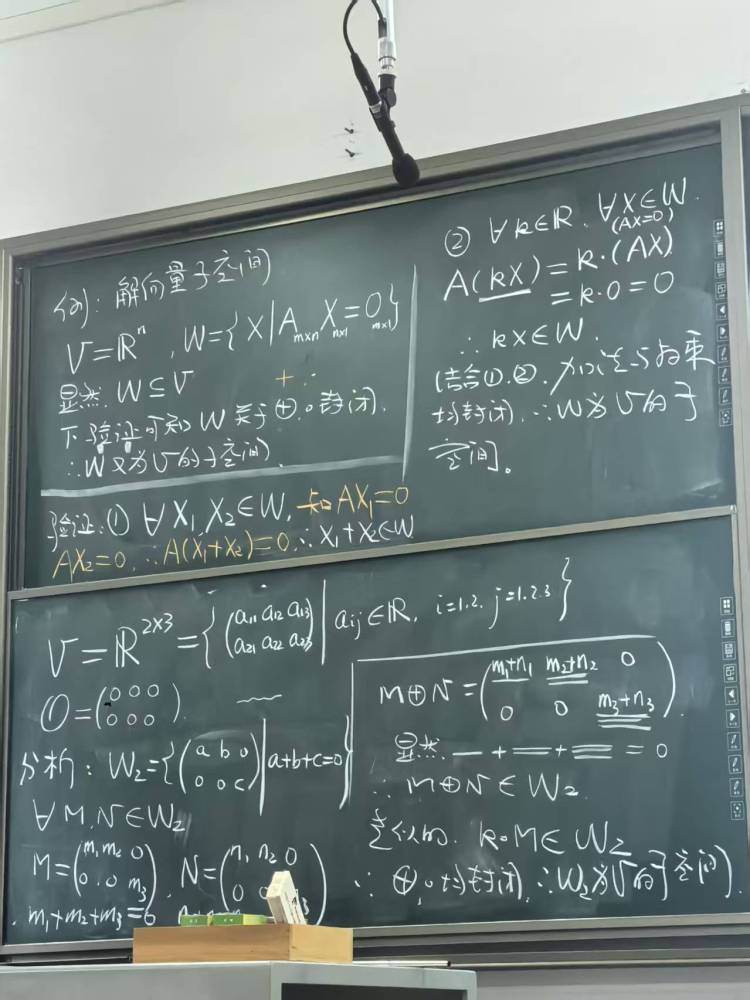 例: 解向量子空间
V=ℝⁿ, W={X|A_{m×n}X_{n×1}=0_{m×1}}
显然 W⊆V
下验证可知 W 关于⊕,∘封闭.
∴W 为V的子空间.
验证:① ∀X₁,X₂∈W, 知AX₁=0
AX₂=0, ∴A(X₁+X₂)=0, ∴X₁+X₂∈W
② ∀k∈ℝ, ∀X∈W.
(AX=0)
A(kX)=k·(AX)
=k·0=0
∴ kX∈W.
结合①,②, 加法与数乘
均封闭, ∴W为V的子
空间。
V=ℝ^{2×3}={(a₁₁ a₁₂ a₁₃
a₂₁ a₂₂ a₂₃)|aij∈ℝ, i=1.2. j=1.2.3}
0=(0 0 0
0 0 0).
分析: W₂={(a b 0
0 0 c)|a+b+c=0}
∀M,N∈W₂
M=(m₁ m₂ 0
0 0 m₃), N=(n₁ n₂ 0
0
m₁+m₂+m₃=0
M⊕N=(m₁+n₁ m₂+n₂ 0
0 0 m₃+n₃).
显然 — + = + ≡ = 0
∴ M⊕N∈W₂.
类似的. k∘M∈W₂
∴ ⊕,∘均封闭, ∴W₂为V的子空间.